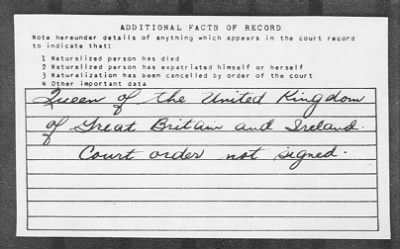 ADDITIONAL FACTS OF RECORD
Note hereunder details of anything which appears in the court record
to indicate that:
1 Naturalized person has died
2 Naturalized person has expatriated himself or herself
3 Naturalization has been cancelled by order of the court
4 Other important data
Queen of the United Kingdom
of Great Britain and Ireland.
Court order not signed.